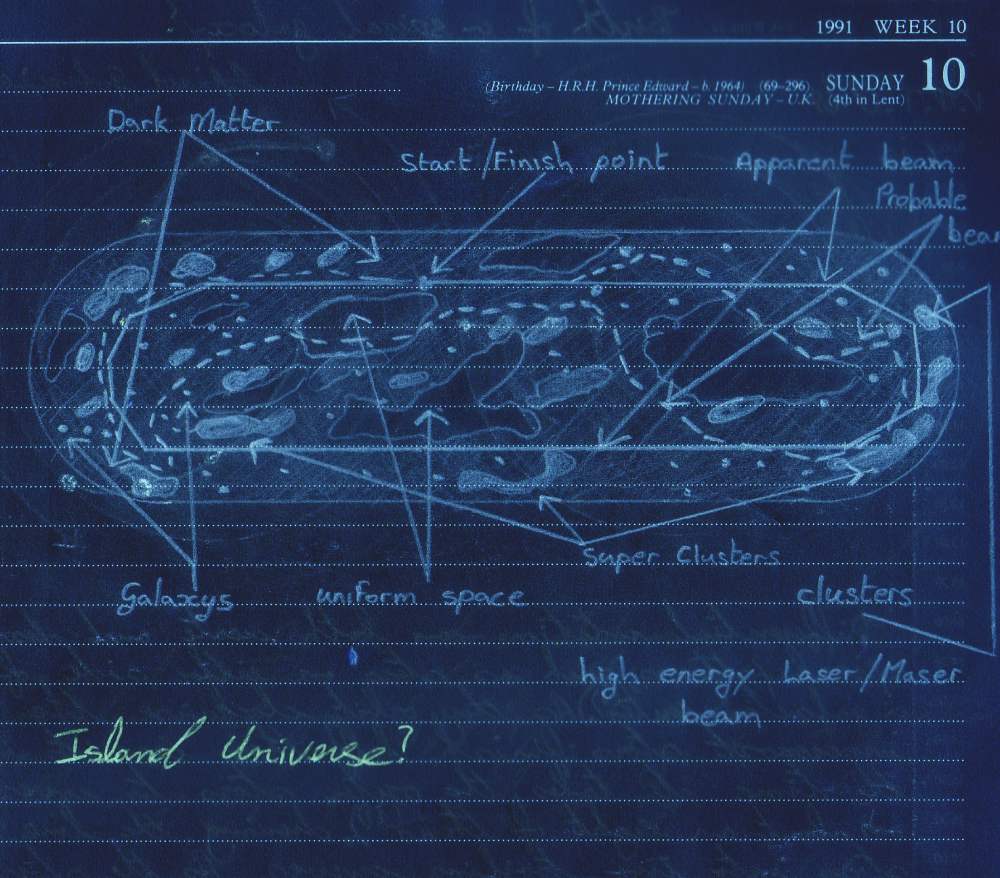 1991 WEEK 10
(Birthday – H.R.H. Prince Edward – b. 1964) (69–296) SUNDAY 10
MOTHERING SUNDAY – U.K. (4th in Lent)
Dark Matter
Start/Finish point
Apparent beam
Probable
Galaxys
uniform space
Super Clusters
clusters
high energy Laser/Maser
beam
Island Universe?